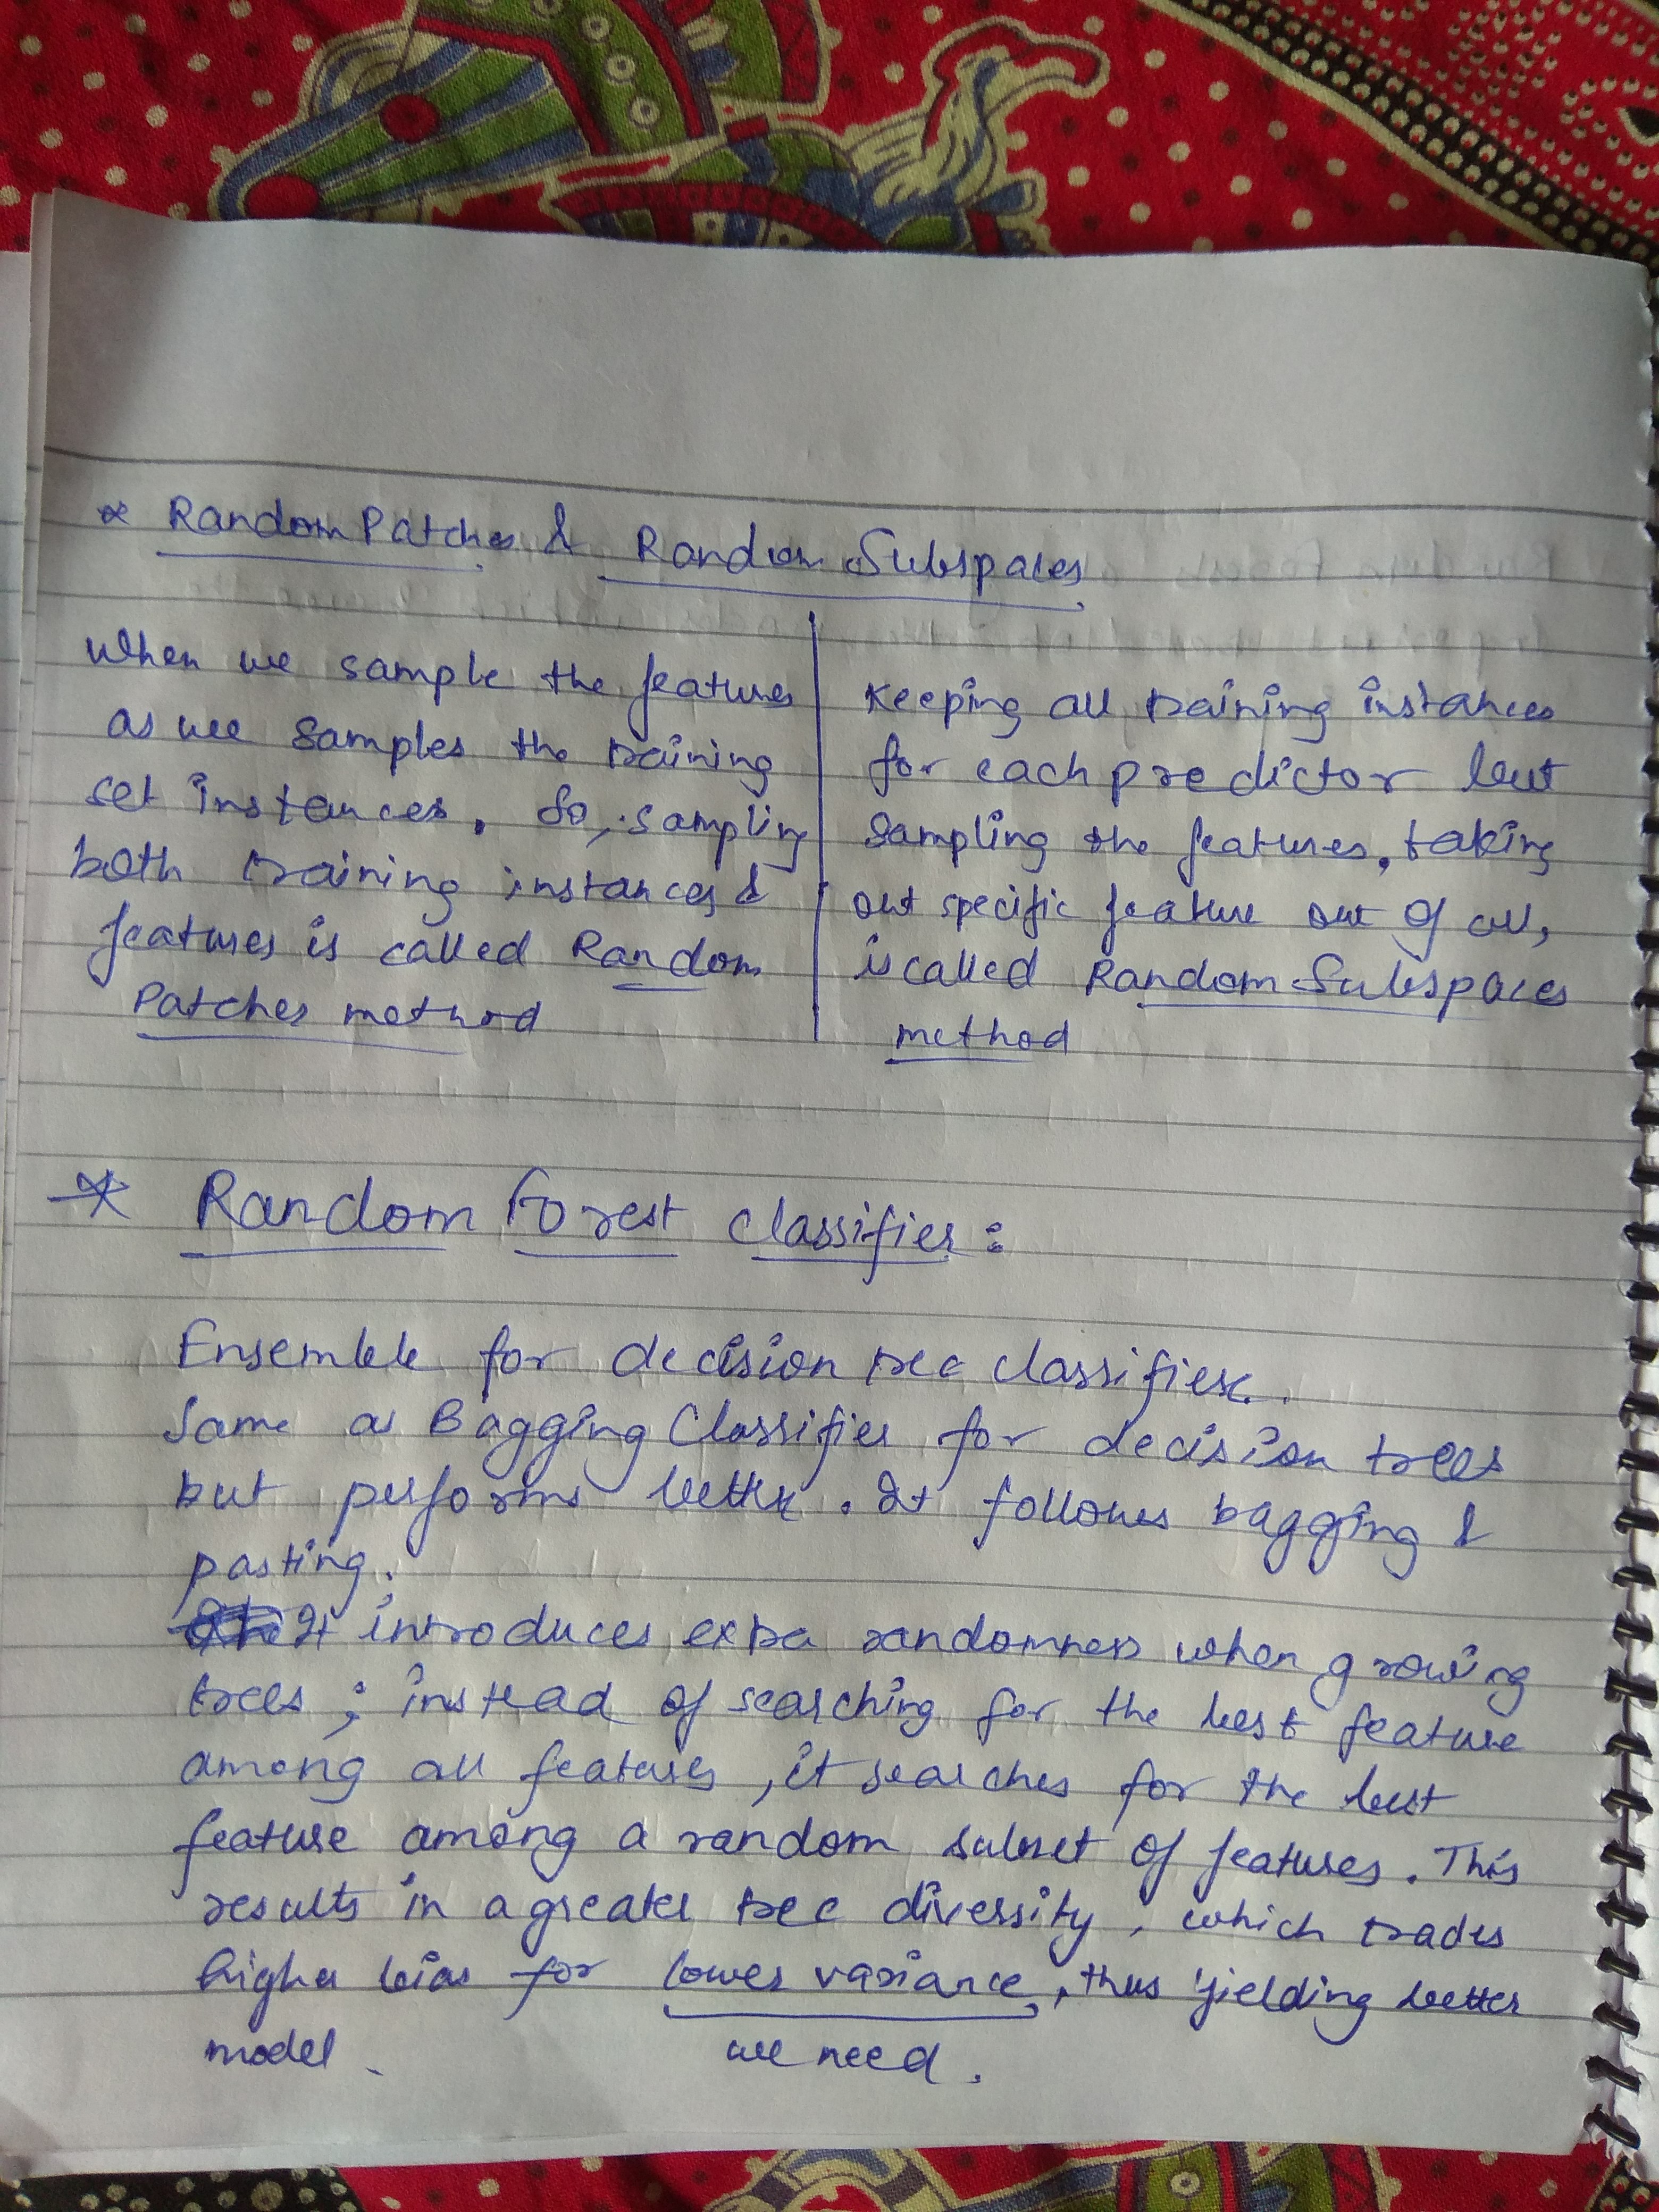 * Random Patches & Random Subspaces
when we sample the features
as we samples the training
set instances. So, sampling
both training instances &
features is called Random
Patches method
Keeping all training instances
for each predictor but
sampling the features, taking
out specific feature out of all,
is called Random Subspaces
method
* Random Forest Classifier:
Ensemble for decision tree classifier.
Same as Bagging Classifier for decision trees
but performs better. It follows bagging &
pasting.
It introduces extra randomness when growing
trees; instead of searching for the best feature
among all features, it searches for the best
feature among a random subset of features. This
results in a greater tree diversity, which trades
higher bias for lower variance, thus yielding better
model. we need.